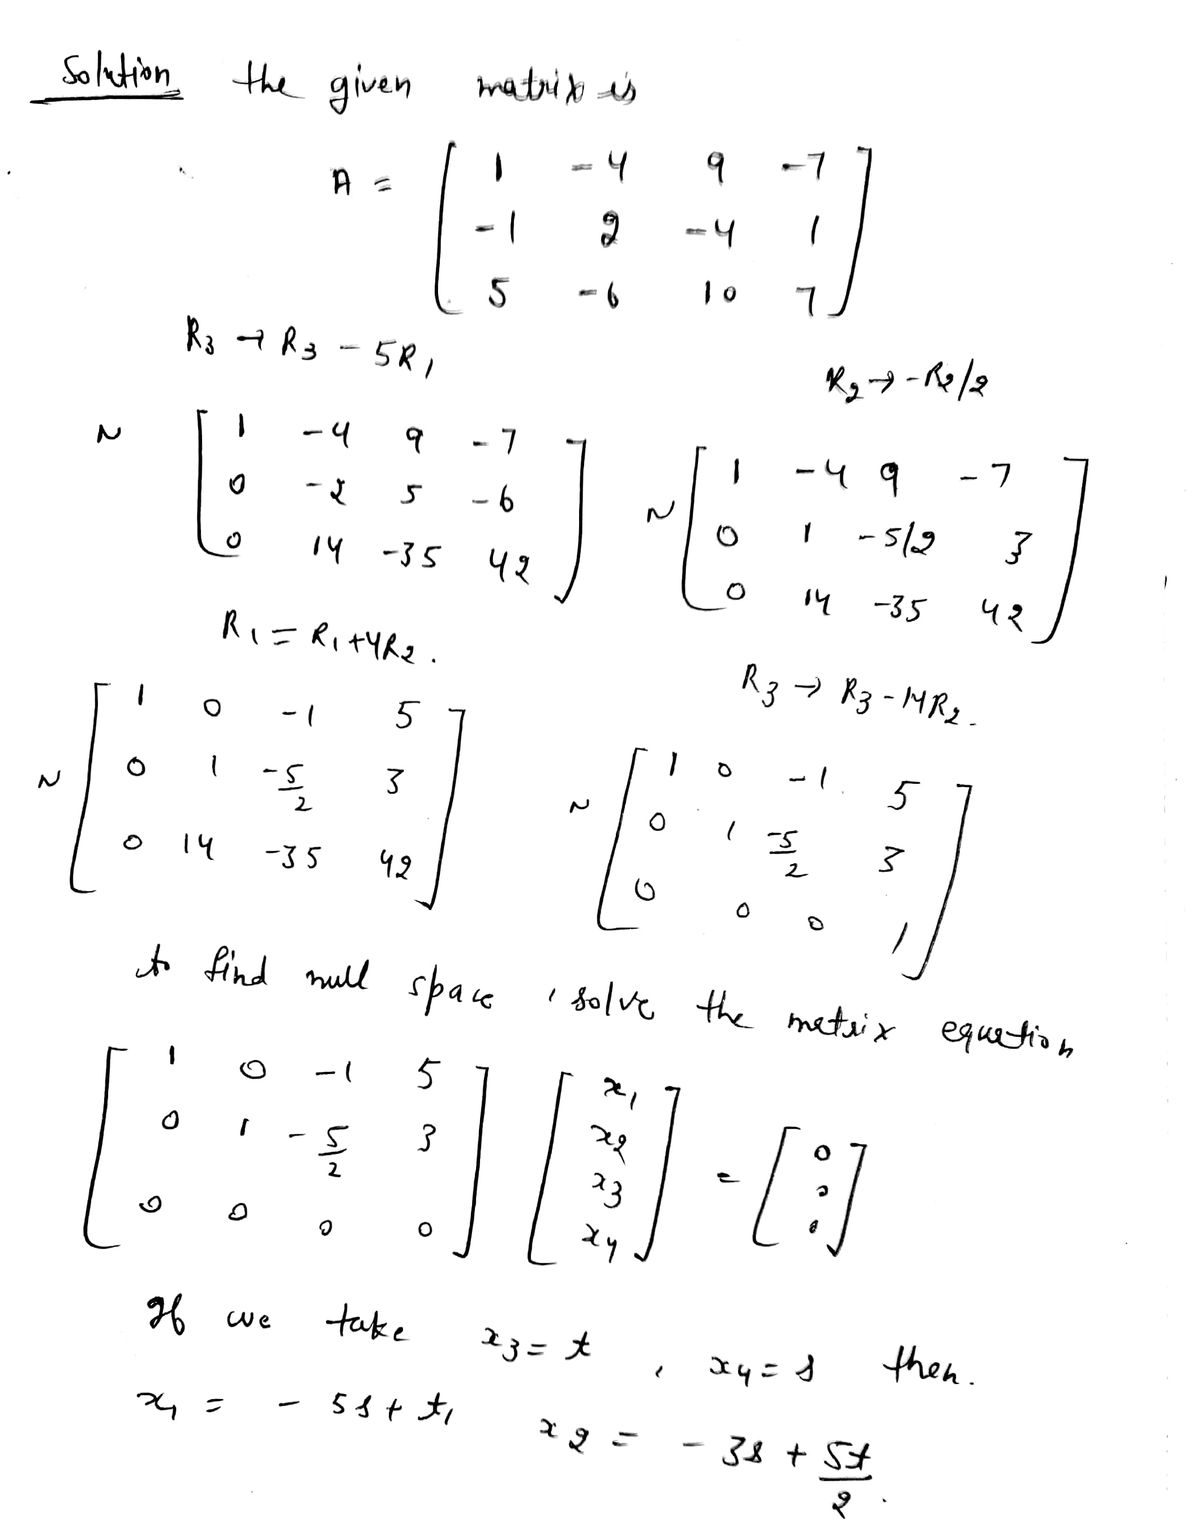 Solution the given matrix is
A = [ 1 -4 9 -7
-1 2 -4 1
5 -6 10 7 ]
R3 → R3 - 5R1
R2 → -R2/2
~ [ 1 -4 9 -7
0 -2 5 -6
0 14 -35 42 ]
~ [ 1 -4 9 -7
0 1 -5/2 3
0 14 -35 42 ]
R1 = R1+4R2.
R3 → R3 - 14R2.
~ [ 1 0 -1 5
0 1 -5/2 3
0 14 -35 42 ]
~ [ 1 0 -1 5
0 1 -5/2 3
0 0 0 1 ]
to find null space, solve the matrix equation
[ 1 0 -1 5
0 1 -5/2 3
0 0 0 0 ] [ x1
x2
x3
x4 ] = [ 0
0
0 ]
If we take x3 = t, x4 = s then.
x1 = - 5s + t, x2 = - 3s + 5t/2.